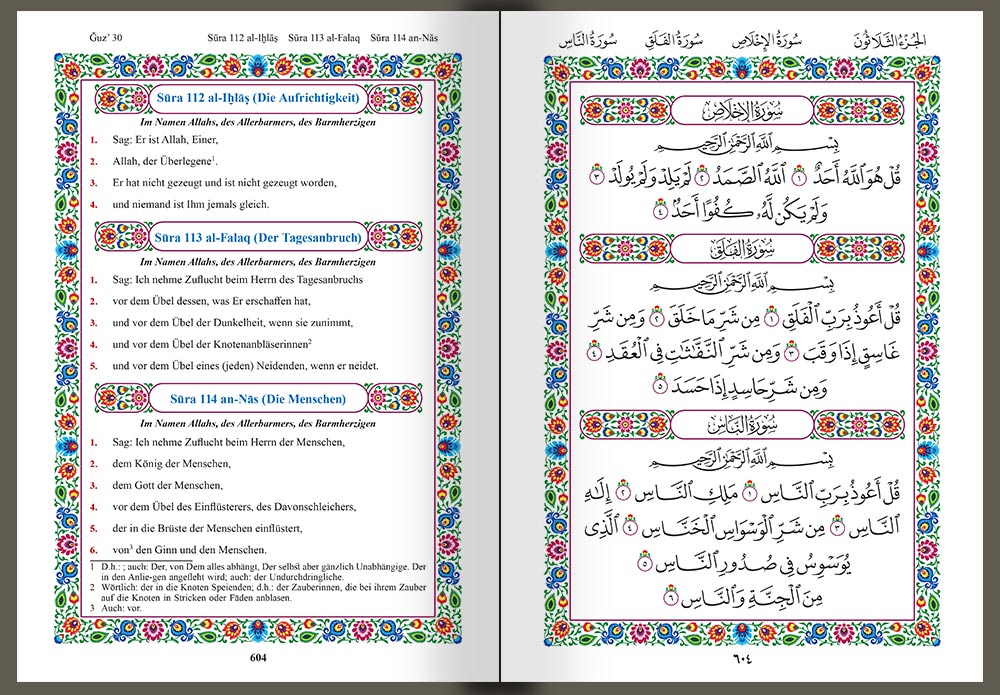 Ǧuz’ 30 Sūra 112 al-Iḫlāṣ Sūra 113 al-Falaq Sūra 114 an-Nās
Sūra 112 al-Iḫlāṣ (Die Aufrichtigkeit)
Im Namen Allahs, des Allerbarmers, des Barmherzigen
1. Sag: Er ist Allah, Einer,
2. Allah, der Überlegene¹.
3. Er hat nicht gezeugt und ist nicht gezeugt worden,
4. und niemand ist Ihm jemals gleich.
Sūra 113 al-Falaq (Der Tagesanbruch)
Im Namen Allahs, des Allerbarmers, des Barmherzigen
1. Sag: Ich nehme Zuflucht beim Herrn des Tagesanbruchs
2. vor dem Übel dessen, was Er erschaffen hat,
3. und vor dem Übel der Dunkelheit, wenn sie zunimmt,
4. und vor dem Übel der Knotenanbläserinnen²
5. und vor dem Übel eines (jeden) Neidenden, wenn er neidet.
Sūra 114 an-Nās (Die Menschen)
Im Namen Allahs, des Allerbarmers, des Barmherzigen
1. Sag: Ich nehme Zuflucht beim Herrn der Menschen,
2. dem König der Menschen,
3. dem Gott der Menschen,
4. vor dem Übel des Einflüsterers, des Davonschleichers,
5. der in die Brüste der Menschen einflüstert,
6. von³ den Ginn und den Menschen.
1 D.h.: ; auch: Der, von Dem alles abhängt, Der selbst aber gänzlich Unabhängige. Der
in den Anlie-gen angefleht wird; auch: der Undurchdringliche.
2 Wörtlich: der in die Knoten Speienden; d.h.: der Zauberinnen, die bei ihrem Zauber
auf die Knoten in Stricken oder Fäden anblasen.
3 Auch: vor.
604
الجُزْءُ الثَّلَاثُونَ سُورَةُ الإِخْلَاصِ سُورَةُ الفَلَقِ سُورَةُ النَّاسِ
سُورَةُ الإِخْلَاصِ
بِسْمِ ٱللَّهِ ٱلرَّحْمَٰنِ ٱلرَّحِيمِ
قُلْ هُوَ ٱللَّهُ أَحَدٌ ١ ٱللَّهُ ٱلصَّمَدُ ٢ لَمْ يَلِدْ وَلَمْ يُولَدْ ٣
وَلَمْ يَكُن لَّهُۥ كُفُوًا أَحَدٌۢ ٤
سُورَةُ الفَلَقِ
بِسْمِ ٱللَّهِ ٱلرَّحْمَٰنِ ٱلرَّحِيمِ
قُلْ أَعُوذُ بِرَبِّ ٱلْفَلَقِ ١ مِن شَرِّ مَا خَلَقَ ٢ وَمِن شَرِّ
غَاسِقٍ إِذَا وَقَبَ ٣ وَمِن شَرِّ ٱلنَّفَّٰثَٰتِ فِى ٱلْعُقَدِ ٤
وَمِن شَرِّ حَاسِدٍ إِذَا حَسَدَ ٥
سُورَةُ النَّاسِ
بِسْمِ ٱللَّهِ ٱلرَّحْمَٰنِ ٱلرَّحِيمِ
قُلْ أَعُوذُ بِرَبِّ ٱلنَّاسِ ١ مَلِكِ ٱلنَّاسِ ٢ إِلَٰهِ
ٱلنَّاسِ ٣ مِن شَرِّ ٱلْوَسْوَاسِ ٱلْخَنَّاسِ ٤ ٱلَّذِى
يُوَسْوِسُ فِى صُدُورِ ٱلنَّاسِ ٥
مِنَ ٱلْجِنَّةِ وَٱلنَّاسِ ٦
٦٠٤